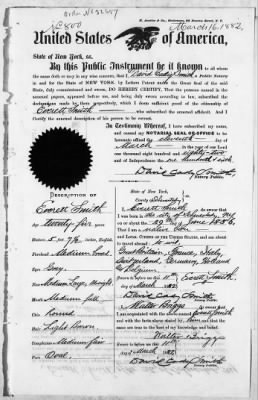 March 16, 1882.
United States of America,
State of New York, ss.
By this Public Instrument be it known to
all whom the same doth or may in any wise concern, that I David Cady Smith a Public Notary
in and for the State of NEW YORK, by Letters Patent under the Great Seal of the said
State, duly commissioned and sworn, DO HEREBY CERTIFY, That the persons named in the
annexed papers, appeared before me, and being duly sworn according to law, subscribed the
declarations made by them, respectively, which I deem sufficient proof of the citizenship of
Everett Smith who subscribed the annexed affidavit. And I
Certify the annexed description of his person to be correct.
In Testimony Whereof, I have subscribed my name,
and caused my NOTARIAL SEAL OF OFFICE to be
hereunto affixed the eleventh day of
March in the year of our Lord
one thousand eight hundred and eighty-two
and of Independence the one hundred & sixth
David Cady Smith
Notary Public.
DESCRIPTION OF
Everett Smith
Age
twenty five years
5 ft 7 1/2 inches, English
Forehead
Medium broad
Eyes
Grey
Nose
Medium Large
Mouth
Medium full
Chin
Round
Hair
Light Brown
Complexion
Medium fair
Face
Oval
State of New York,
County
I Everett Smith
do swear that
I was born in the city of Schenectady, N.Y.
on or about the
day of June 1856
I am a native born
and LOYAL CITIZEN OF THE UNITED STATES, and am about
to travel to wit
Great Britain, France, Italy,
Switzerland, Germany, Holland
& Belgium
Everett Smith
Sworn to before me this 11th
day of March 1882
David Cady Smith
Notary Public.
I, Walter Briggs
am acquainted with the above named Everett Smith
and with the facts above stated by him and that the same
are true to the best of my knowledge and belief.
Walter Briggs
Sworn to before me this 11th
day of March 1882
David Cady Smith
Notary Public.